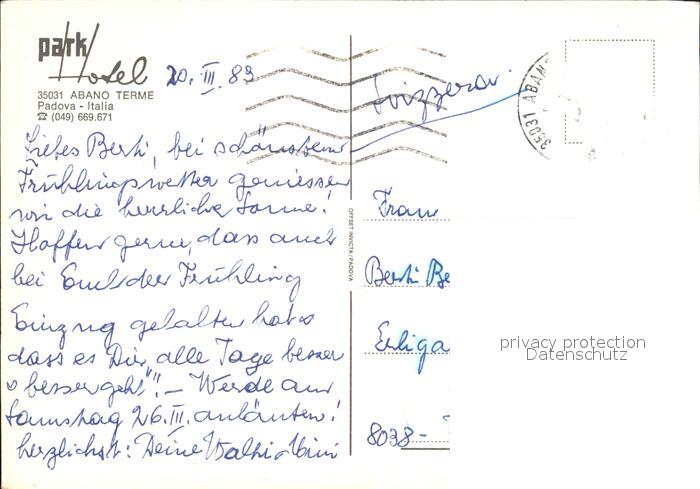 park
Hotel
35031 ABANO TERME
Padova - Italia
☎ (049) 669.671
20. III. 83
Svizzera
35031 ABAN
Liebes Berti, bei schönstem
Frühlingswetter geniessen
wir die herrliche Sonne!
Hoffen gerne, dass auch
bei Euch der Frühling
Einzug gehalten hat
dass es Dir alle Tage besser
besser geht"!! – Werde am
Samstag 26. III. anläuten!
herzlichst: Deine
OFFSET INVICTA/PADOVA
Frau
Berti Be
8038-
privacy protection
Datenschutz